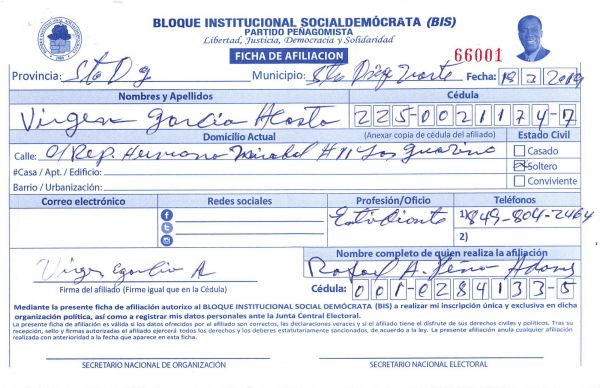 BLOQUE INSTITUCIONAL SOCIALDEMÓCRATA (BIS)
PARTIDO PEÑAGOMISTA
Libertad, Justicia, Democracia y Solidaridad
FICHA DE AFILIACION
66001
Provincia: Sto Dgo Municipio: Sto Dgo Norte Fecha: 18 2 2019
Nombres y Apellidos Cédula
Virgen Garcia Acosta 225-0021174-7
Domicilio Actual (Anexar copia de cédula del afiliado) Estado Civil
Calle: C/ Rep. Hermana Mirabal # 11 Los Guarino
Casado
#Casa / Apt. / Edificio: Soltero
Barrio / Urbanización: Conviviente
Correo electrónico Redes sociales Profesión/Oficio Teléfonos
Estudiante 1) 849-804-2464
2)
Virgen Garcia A
Firma del afiliado (Firme igual que en la Cédula)
Nombre completo de quien realiza la afiliación
Rafael A. Peña Adames
Cédula: 001-0284133-5
Mediante la presente ficha de afiliación autorizo al BLOQUE INSTITUCIONAL SOCIAL DEMÓCRATA (BIS) a realizar mi inscripción única y exclusiva en dicha
organización política, así como a registrar mis datos personales ante la Junta Central Electoral.
La presente ficha de afiliación es válida si los datos ofrecidos por el afiliado son correctos, las declaraciones veraces y si el afiliado tiene el disfrute de sus derechos civiles y políticos. Tras su
recepción, sello y firmas autorizadas el afiliado ejercerá todos los derechos y los deberes estatutariamente sancionados, de acuerdo a la ley. La presente afiliación anula cualquier afiliación
realizada con anterioridad a la fecha que aparece en esta ficha.
SECRETARIO NACIONAL DE ORGANIZACIÓN SECRETARIO NACIONAL ELECTORAL